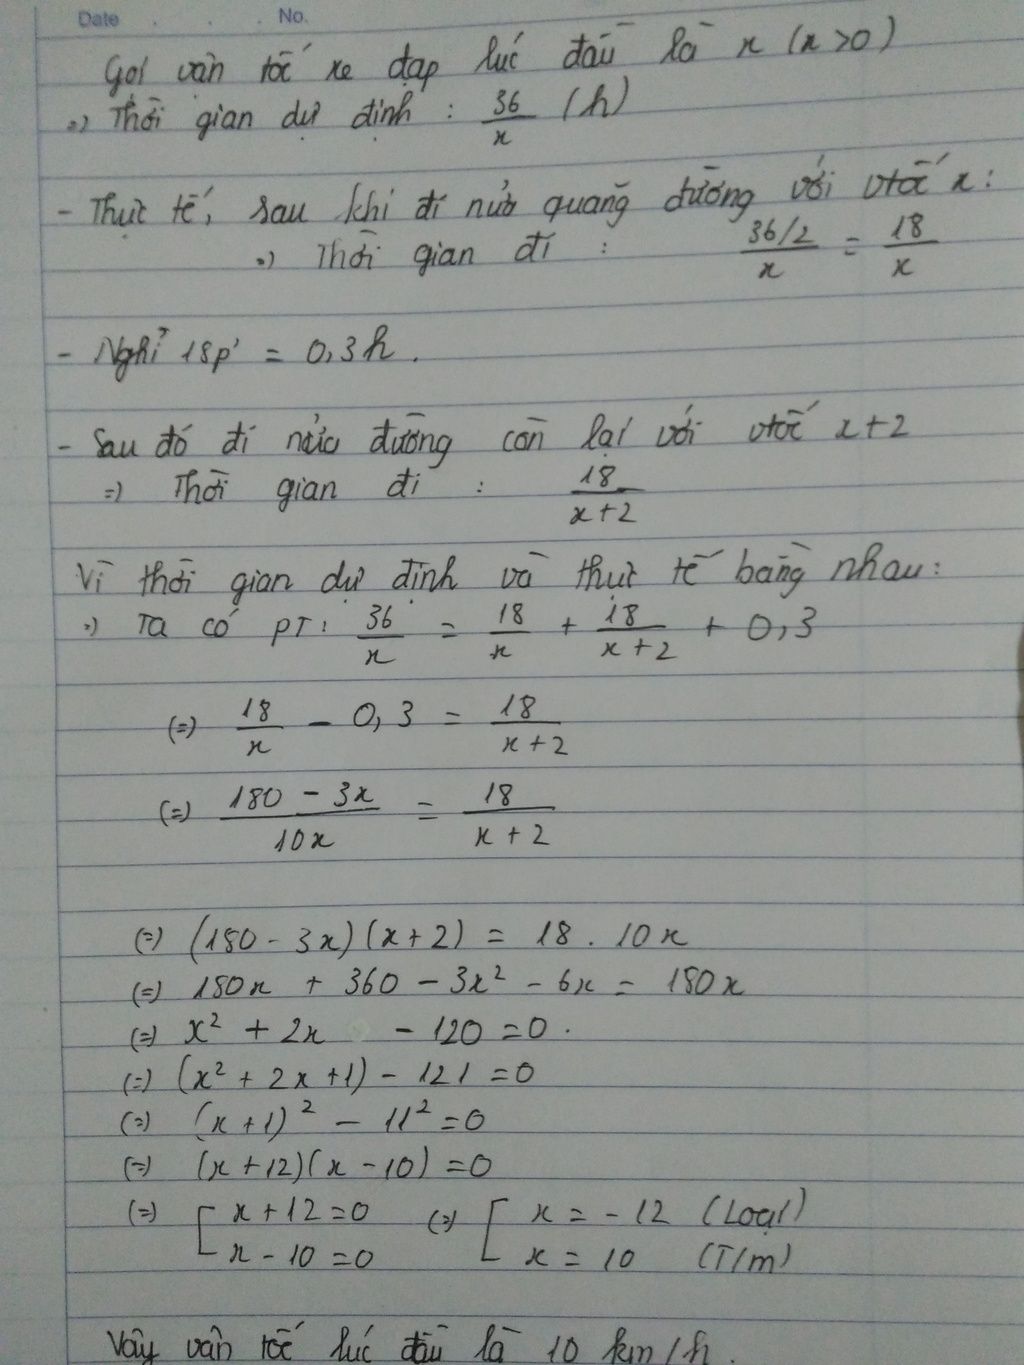 Date . . . No.
Gọi vận tốc xe đạp lúc đầu là x (x > 0)
=) Thời gian dự định : 36/x (h)
- Thực tế, sau khi đi nửa quãng đường với vtốc x :
=) Thời gian đi : (36/2)/x = 18/x
- Nghỉ 18p' = 0,3h.
- Sau đó đi nửa đường còn lại với vtốc x+2
=) Thời gian đi : 18/(x+2)
Vì thời gian dự định và thực tế bằng nhau :
=) Ta có PT: 36/x = 18/x + 18/(x+2) + 0,3
(=) 18/x - 0,3 = 18/(x+2)
(=) (180 - 3x)/10x = 18/(x+2)
(=) (180 - 3x)(x+2) = 18 . 10x
(=) 180x + 360 - 3x² - 6x = 180x
(=) x² + 2x - 120 = 0.
(=) (x² + 2x + 1) - 121 = 0
(=) (x+1)² - 11² = 0
(=) (x+12)(x-10) = 0
(=) [ x+12 = 0 (=) [ x = -12 (Loại)
x - 10 = 0 x = 10 (T/m)
Vậy vận tốc lúc đầu là 10 km/h.